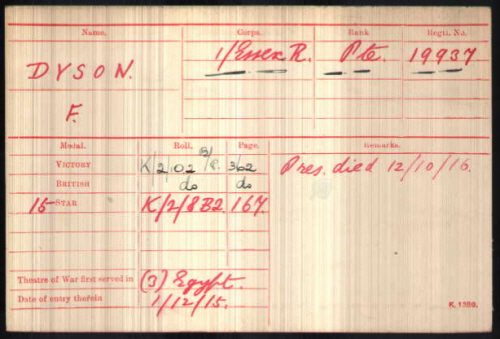 Name. Corps. Rank Regtl. No.
DYSON. 1/Essex R. Pte. 19937
F.
Medal. Roll. Page. Remarks.
VICTORY K/2/102 B/8. 362 Pres. died 12/10/16.
BRITISH do do
15 STAR K/2/8B2. 167.
Theatre of War first served in (3) Egypt.
Date of entry therein 1/12/15.
K. 1380.